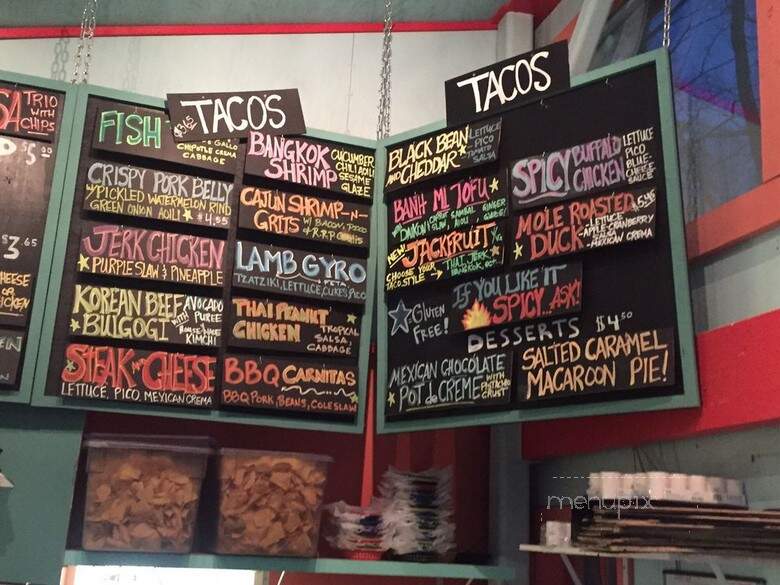 TRIO
WITH
CHIPS
$5.
$3.65
CHEESE
OR
CHICKEN
TACOS
FISH
CHIPOTLE CREMA
CABBAGE
CRISPY PORK BELLY
PICKLED WATERMELON RIND
GREEN ONION AIOLI $4.95
JERK CHICKEN
PURPLE SLAW & PINEAPPLE
KOREAN BEEF
BULGOGI
WITH
AVOCADO
PUREE
HOUSE-MADE
KIMCHI
STEAK AND CHEESE
LETTUCE, PICO, MEXICAN CREMA
BANGKOK
SHRIMP
CUCUMBER
CHILI AIOLI
SESAME
GLAZE
CAJUN SHRIMP-N-
GRITS
W/ BACON, PICO
LAMB GYRO
FETA
TZATZIKI, LETTUCE, CUKES, PICO
THAI PEANUT
CHICKEN
TROPICAL
SALSA,
CABBAGE
BBQ CARNITAS
BBQ PORK, BEANS, COLESLAW
TACOS
BLACK BEAN
AND CHEDDAR
LETTUCE
PICO
TOMATO
SALSA
BANH MI TOFU
NEW
JACKFRUIT
CHOOSE YOUR
TACO STYLE
THAI, JERK
BANGKOK,
GLUTEN
FREE!
SPICY BUFFALO
CHICKEN
LETTUCE
PICO
BLUE-
CHEESE
SAUCE
MOLE ROASTED
DUCK
-LETTUCE
-APPLE-CRANBERRY
SALSA
-MEXICAN CREMA
IF YOU LIKE IT
SPICY...ASK!
DESSERTS $4.50
MEXICAN CHOCOLATE
POT de CREME
WITH
PISTACHIO
CRUST
SALTED CARAMEL
MACAROON PIE!
menupix